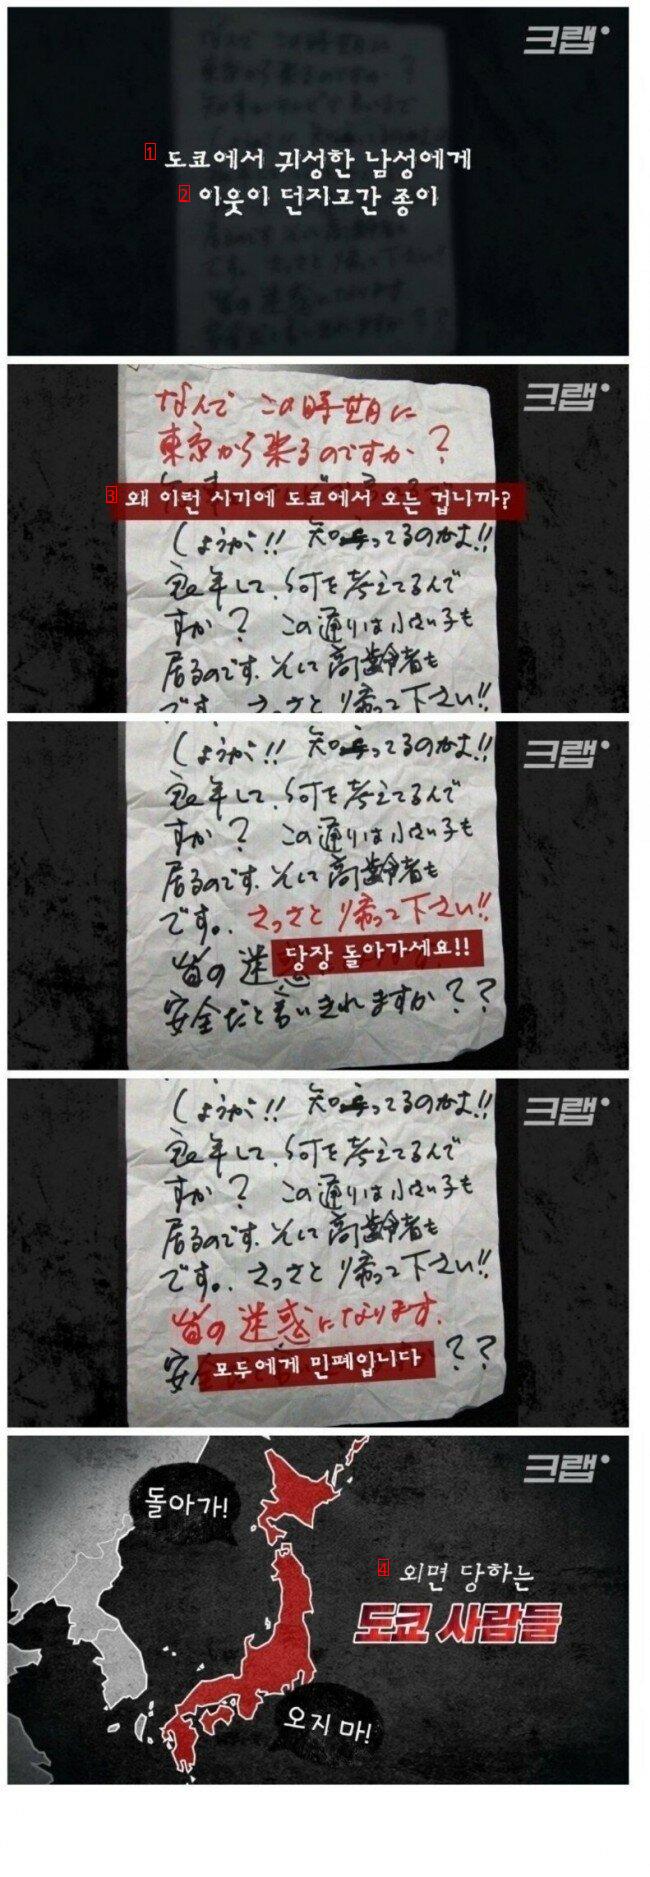 크랩
1 도쿄에서 귀성한 남성에게
2 이웃이 던지고간 종이
크랩
なんで この時期に
東京から来るのですか?
3 왜 이런 시기에 도쿄에서 오는 겁니까?
しょうが!! 知ってるのかよ!!
良い年して、何を考えてるんで
すか? この通りは小さい子も
居るのです。そして高齢者も
です。さっさと帰って下さい!!
크랩
しょうが!! 知ってるのかよ!!
良い年して、何を考えてるんで
すか? この通りは小さい子も
居るのです。そして高齢者も
です。さっさと帰って下さい!!
당장 돌아가세요!!
皆の迷惑
安全だと言いきれますか??
크랩
しょうが!! 知ってるのかよ!!
良い年して、何を考えてるんで
すか? この通りは小さい子も
居るのです。そして高齢者も
です。さっさと帰って下さい!!
皆の迷惑になります。
모두에게 민폐입니다
安 ??
크랩
돌아가!
4 외면 당하는
도쿄 사람들
오지 마!